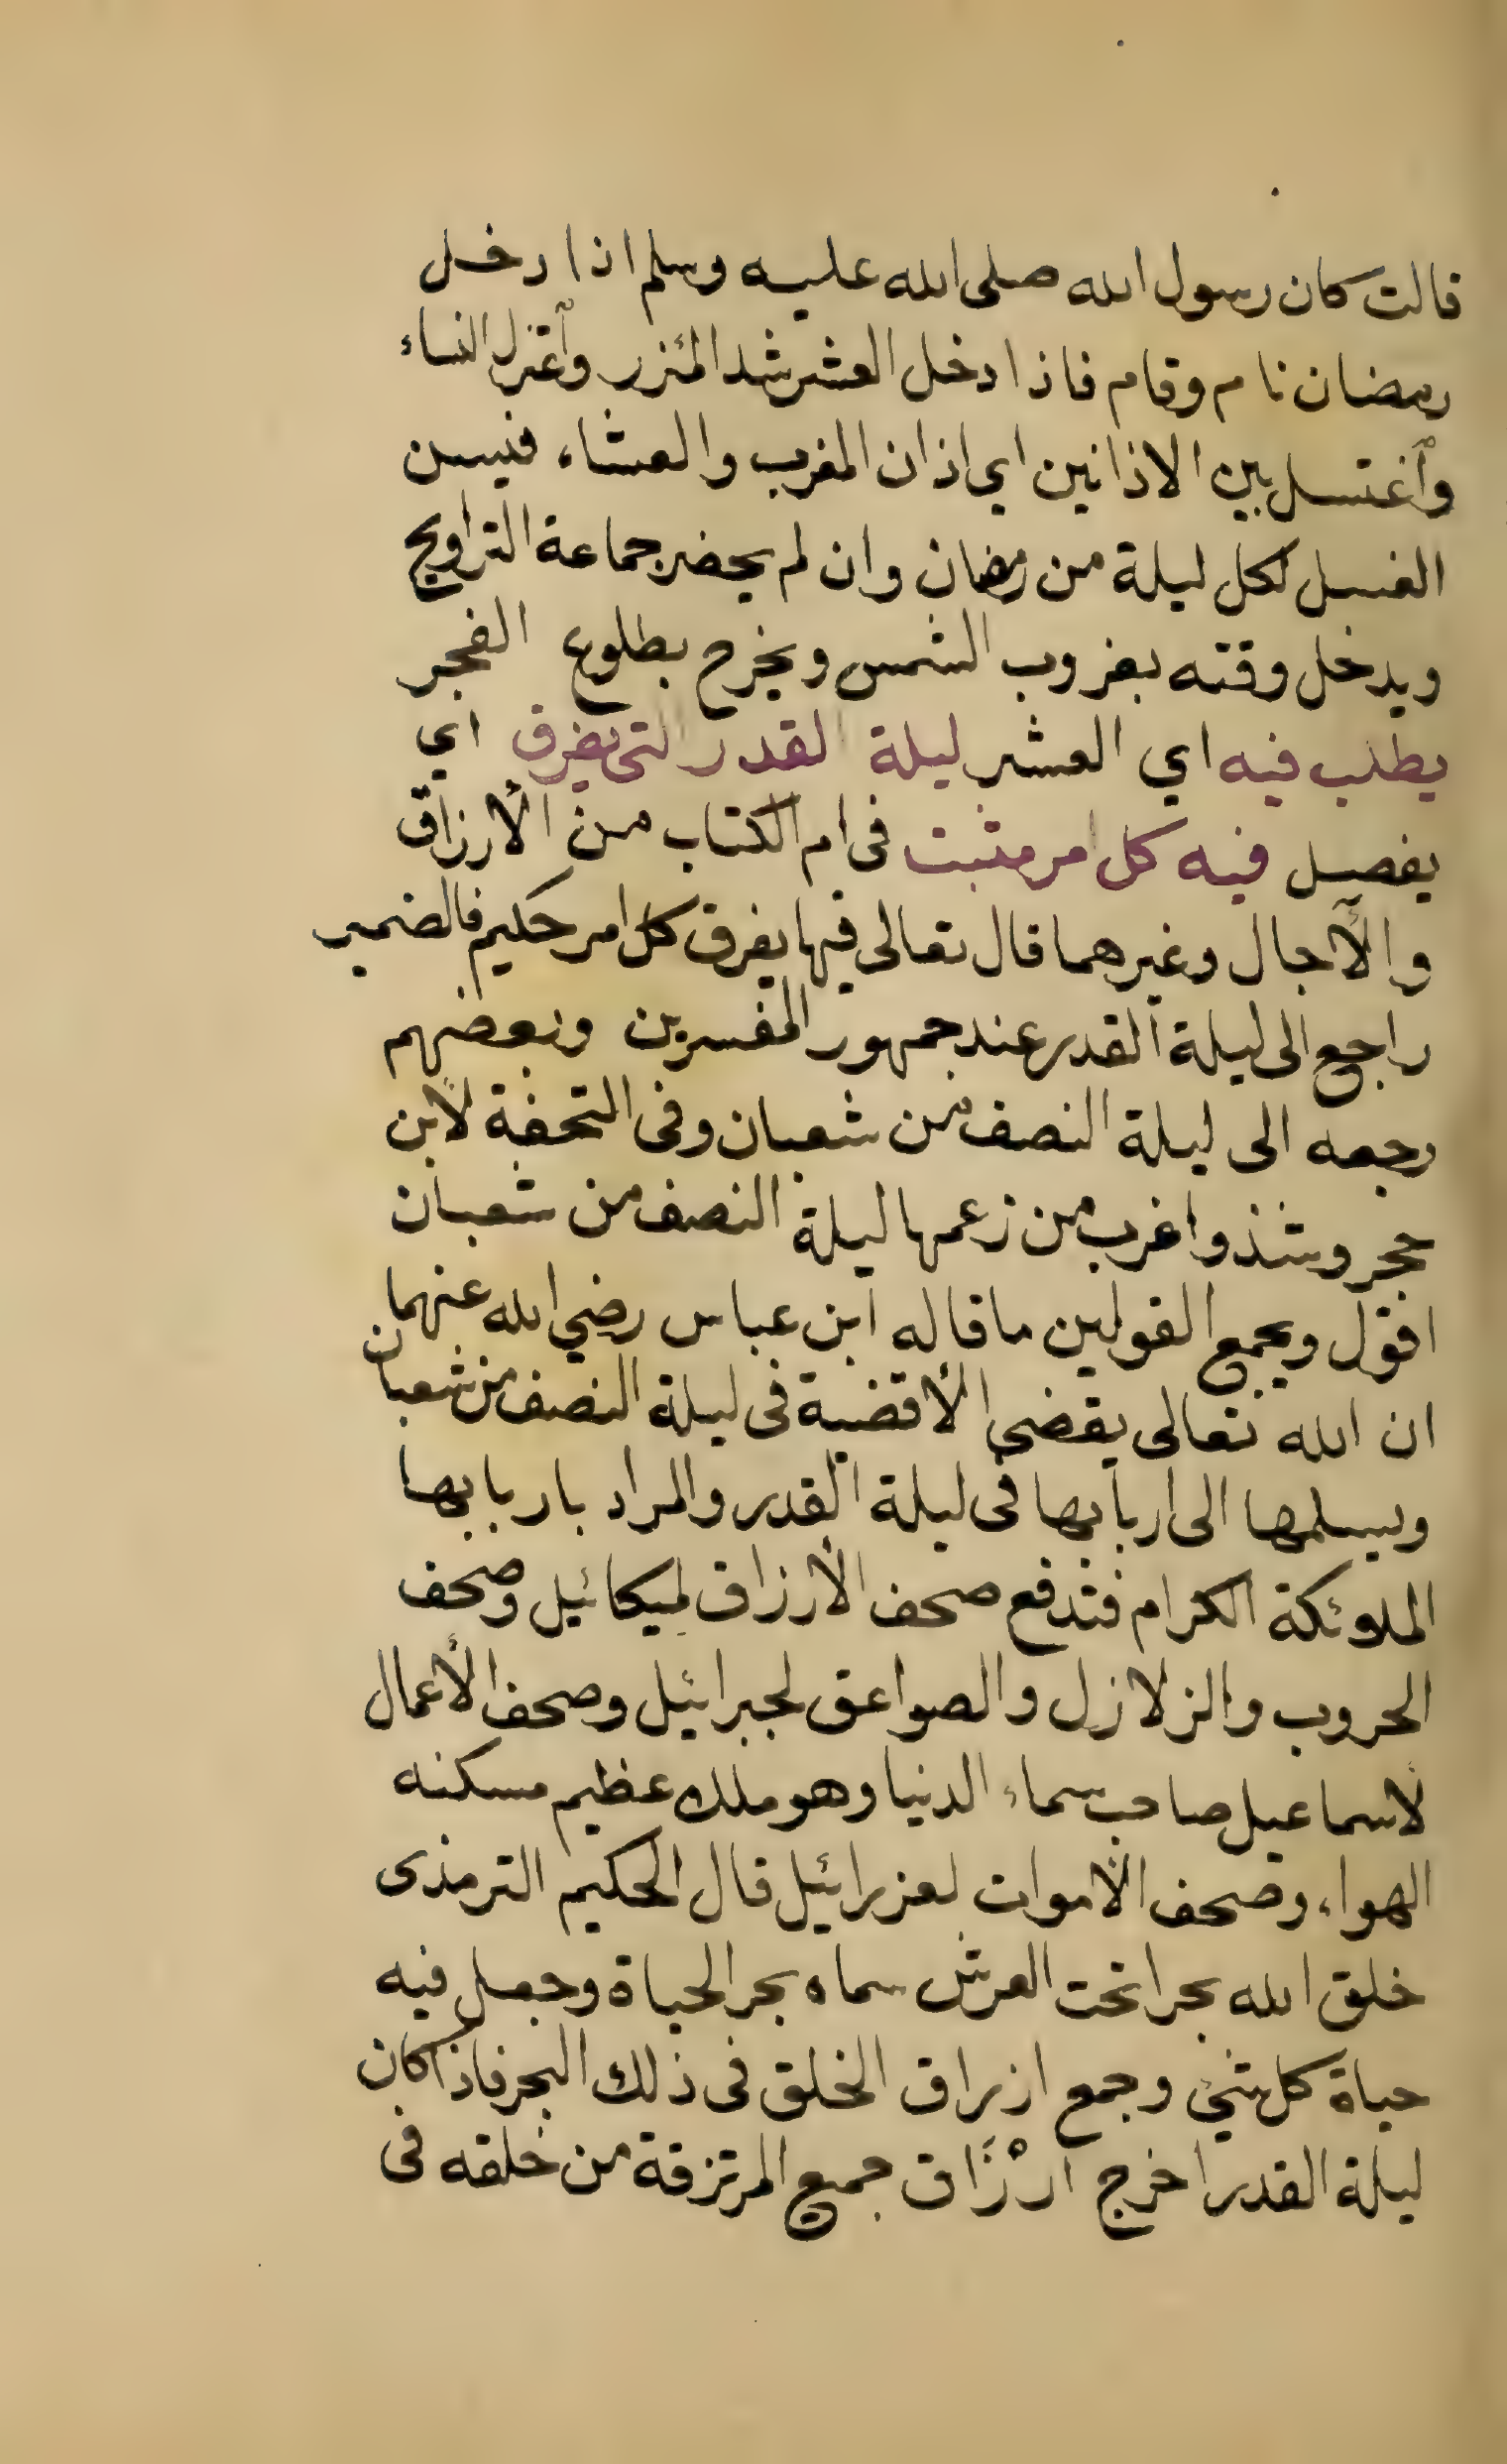 قالت كان رسول الله صلى الله عليه وسلم اذا دخل
رمضان نام وقام فاذا دخل العشر شد المئزر وٱعتزل النساء
وٱغتسل بين الاذانين اي اذان المغرب والعشاء فيسن
الغسل لكل ليلة من رمضان وان لم يحضر جماعة التراويح
ويدخل وقته بغروب الشمس ويخرج بطلوع الفجر
يطلب فيه اي العشر ليلة القدر التى يفرق اي
يفصل فيه كل امر مثبت فى ام الكتاب من الأرزاق
والآجال وغيرهما قال تعالى فيها يفرق كل امر حكيم فالضمير
راجع الى ليلة القدر عند جمهور المفسرين وبعضهم
رجعه الى ليلة النصف من شعبان وفى التحفة لابن
حجر وشذ واغرب من زعمها ليلة النصف من شعبان
اقول ويجمع القولين ما قاله ابن عباس رضي الله عنهما
ان الله تعالى يقضي الأقضية فى ليلة النصف من شعبان
ويسلمها الى اربابها فى ليلة القدر والمراد باربابها
الملائكة الكرام فتدفع صحف الأرزاق لميكائيل وصحف
الحروب والزلازل والصواعق لجبرائيل وصحف الأعمال
لاسماعيل صاحب سماء الدنيا وهو ملك عظيم مسكنه
الهواء وصحف الأموات لعزرائيل قال الحكيم الترمذى
خلق الله بحرا تحت العرش سماه بحر الحياة وجعل فيه
حياة كل شئ وجمع ارزاق الخلق فى ذلك البحر فاذا كان
ليلة القدر اخرج ارْزَاق جميع المرتزقة من خلقه فى